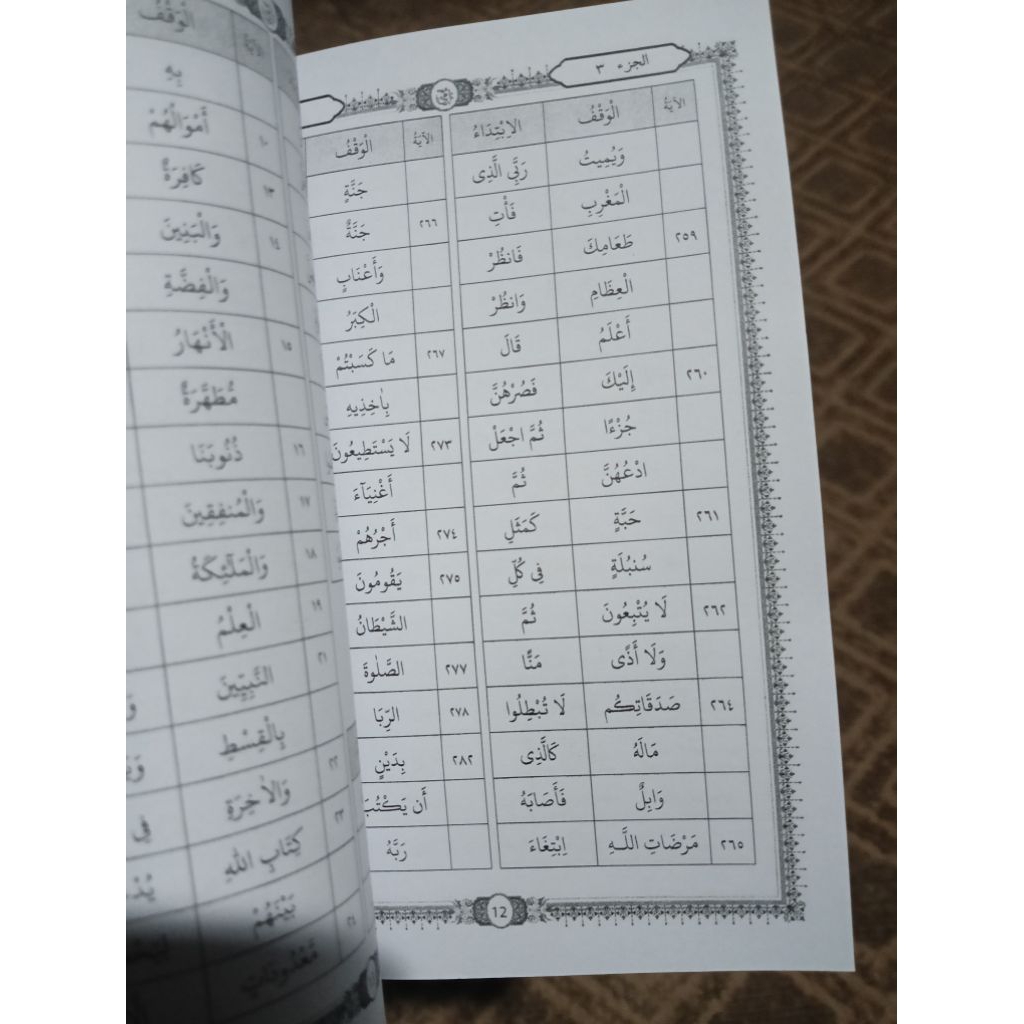 الجزء ٣
الآيَةُ الْوَقْفُ الاِبْتِدَاءُ
وَيُمِيتُ رَبِّيَ الَّذِى
الْمَغْرِبِ فَأْتِ
٢٥٩ طَعَامِكَ فَانظُرْ
الْعِظَامِ وَانظُرْ
أَعْلَمُ قَالَ
٢٦٠ إِلَيْكَ فَصُرْهُنَّ
جُزْءًا ثُمَّ اجْعَلْ
ادْعُهُنَّ ثُمَّ
٢٦١ حَبَّةٍ كَمَثَلِ
سُنبُلَةٍ فِى كُلِّ
٢٦٢ لَا يُتْبِعُونَ ثُمَّ
وَلَا أَذًى مَنًّا
٢٦٤ صَدَقَاتِكُم لَا تُبْطِلُوا
مَالَهُ كَالَّذِى
وَابِلٌ فَأَصَابَهُ
٢٦٥ مَرْضَاتِ اللَّهِ اِبْتِغَاءَ
الآيَةُ الْوَقْفُ
جَنَّةٍ
٢٦٦ جَنَّةٌ
وَأَعْنَابٍ
الْكِبَرُ
٢٦٧ مَا كَسَبْتُمْ
بِاٰخِذِيهِ
٢٧٣ لَا يَسْتَطِيعُونَ
أَغْنِيَآءَ
٢٧٤ أَجْرُهُمْ
٢٧٥ يَقُومُونَ
الشَّيْطَانُ
٢٧٧ الصَّلٰوةَ
٢٧٨ الرِّبَا
٢٨٢ بِدَيْنٍ
أَن يَكْتُبَ
رَبَّهُ
12
الآيَةُ الْوَقْفُ
بِهِ
١٠ أَمْوَالُهُمْ
١٣ كَافِرَةٌ
١٤ وَالْبَنِينَ
وَالْفِضَّةِ
١٥ الْأَنْهَارُ
مُّطَهَّرَةٌ
١٦ ذُنُوبَنَا
١٧ وَالْمُنفِقِينَ
١٨ وَالْمَلٰٓئِكَةُ
١٩ الْعِلْمُ
٢١ النَّبِيِّينَ
بِالْقِسْطِ
٢٢ وَالْاٰخِرَةِ
٢٣ كِتَابِ اللهِ فِى
بَيْنَهُمْ
٢٤ مَّعْدُودَاتٍ